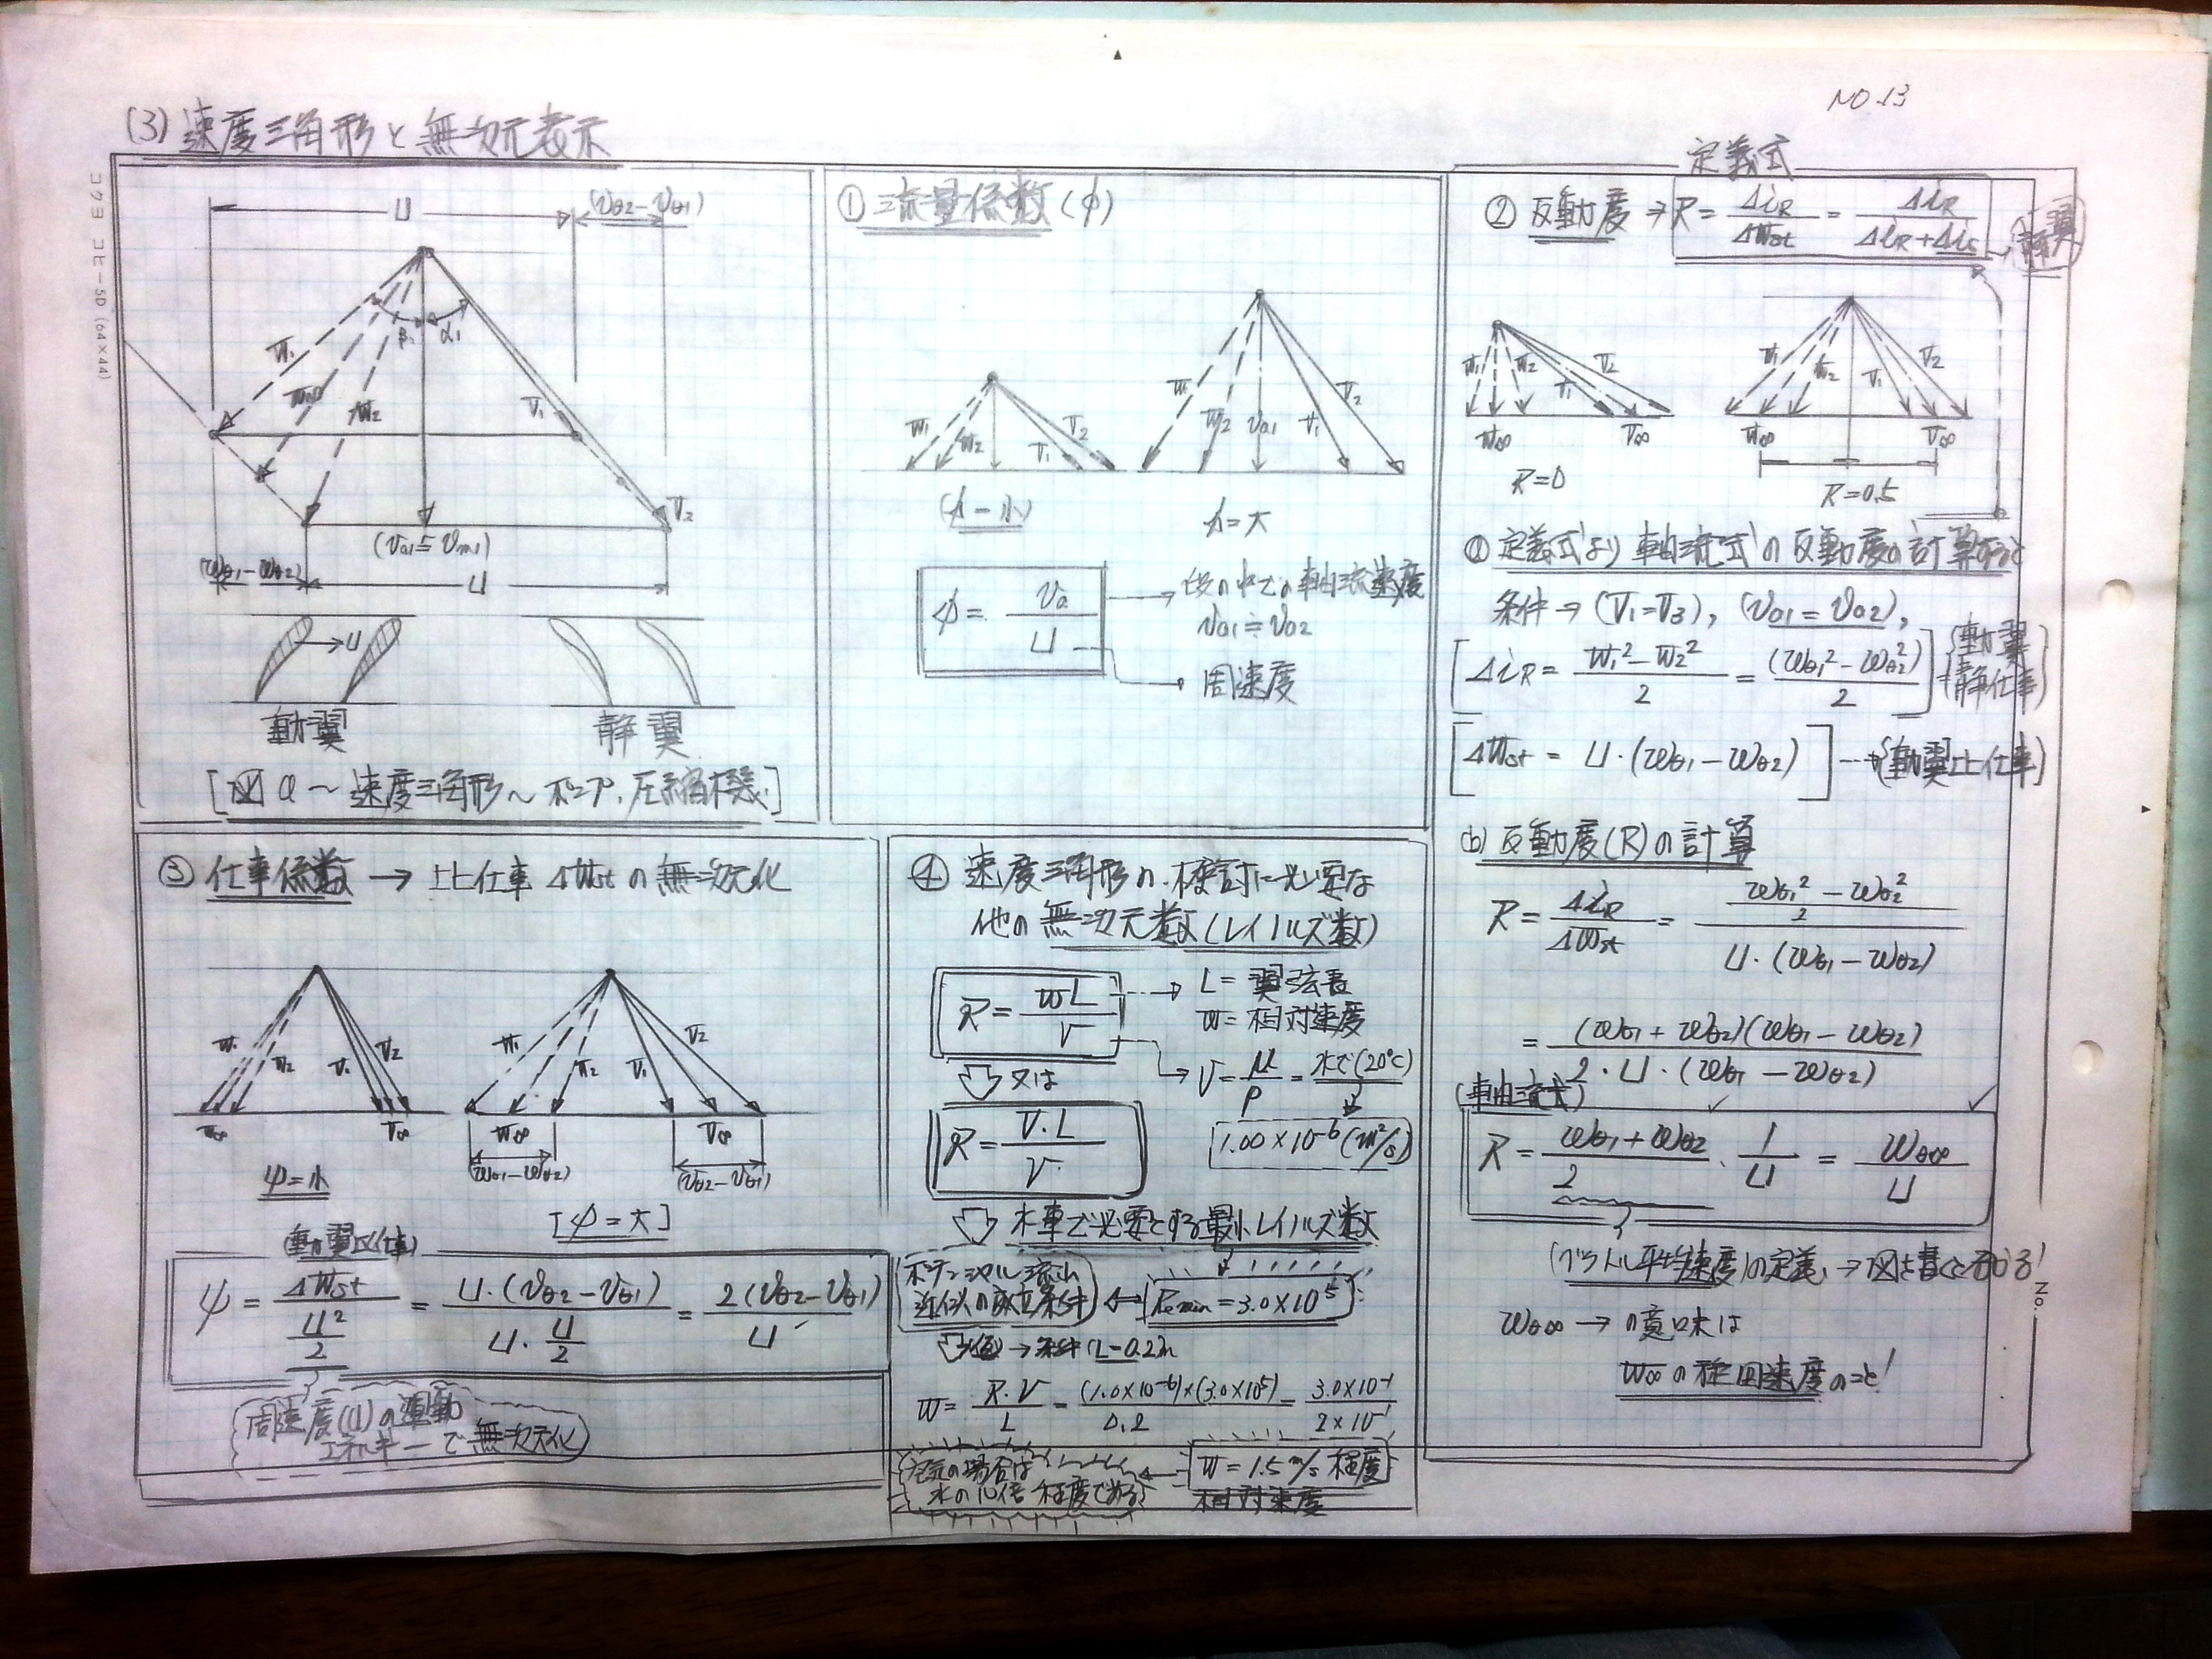 NO.13
(3) 速度三角形と無次元表示
コクヨ コヒー5D (64×44)
U
(Vθ2−Vθ1)
β1
α1
W1
W∞
W2
V1
V2
(Va1≒Vm1)
(Wθ1−Wθ2)
U
U
動翼
静翼
[図a〜速度三角形〜ポンプ、圧縮機]
① 流量係数(φ)
W1
W2
V1
V2
W1
W2
Va1
V1
V2
(φ=小)
φ=大
φ= Va / U
段の中での軸流速度
Va1≒Va2
周速度
定義式
② 反動度 → R= ΔiR / ΔWst = ΔiR / ΔiR+Δis
静翼
W1
W2
V1
V2
W∞
V∞
R=0
W1
W2
V1
V2
W∞
V∞
R=0.5
ⓐ 定義式より軸流式の反動度の計算すると
条件→(V1=V3), (Va1=Va2),
[ΔiR= W1²−W2² / 2 = (Wθ1²−Wθ2²) / 2]
動翼
静仕事
[ΔWst = U・(Wθ1−Wθ2)] → {動翼比仕事}
(b) 反動度(R)の計算
R= ΔiR / ΔWst = Wθ1²−Wθ2² / 2 / U・(Wθ1−Wθ2)
= (Wθ1+Wθ2)(Wθ1−Wθ2) / 2・U・(Wθ1−Wθ2)
(軸流式)
R= Wθ1+Wθ2 / 2 ・ 1 / U = Wθ∞ / U
(ベクトル平均速度)の定義→図を書くと分かる!
Wθ∞→の意味は
W∞の旋回速度のこと!
No.
③ 仕事係数 → 比仕事ΔWstの無次元化
W1
W2
V1
V2
W∞
V∞
ψ=小
W1
W2
V1
V2
W∞
V∞
(Wθ1−Wθ2)
(Vθ2−Vθ1)
[ψ=大]
(動翼比仕事)
ψ= ΔWst / U² / 2 = U・(Vθ2−Vθ1) / U・U / 2 = 2(Vθ2−Vθ1) / U
周速度(U)の運動
エネルギーで無次元化
④ 速度三角形の検討に必要な
他の無次元数(レイノルズ数)
R= WL / ν
L= 翼弦長
W= 相対速度
又は
ν= μ / ρ = 水で(20℃)
1.00×10⁻⁶(m²/s)
R= V・L / ν
水車で必要とする最小レイノルズ数
ポテンシャル流れ
近似の成立条件
Remin=3.0×10⁵
→条件(L=0.2m
W= R・ν / L = (1.0×10⁻⁶)×(3.0×10⁵) / 0.2 = 3.0×10⁻¹ / 2×10⁻¹
W=1.5m/s程度
相対速度
空気の場合は
水の10倍程度である